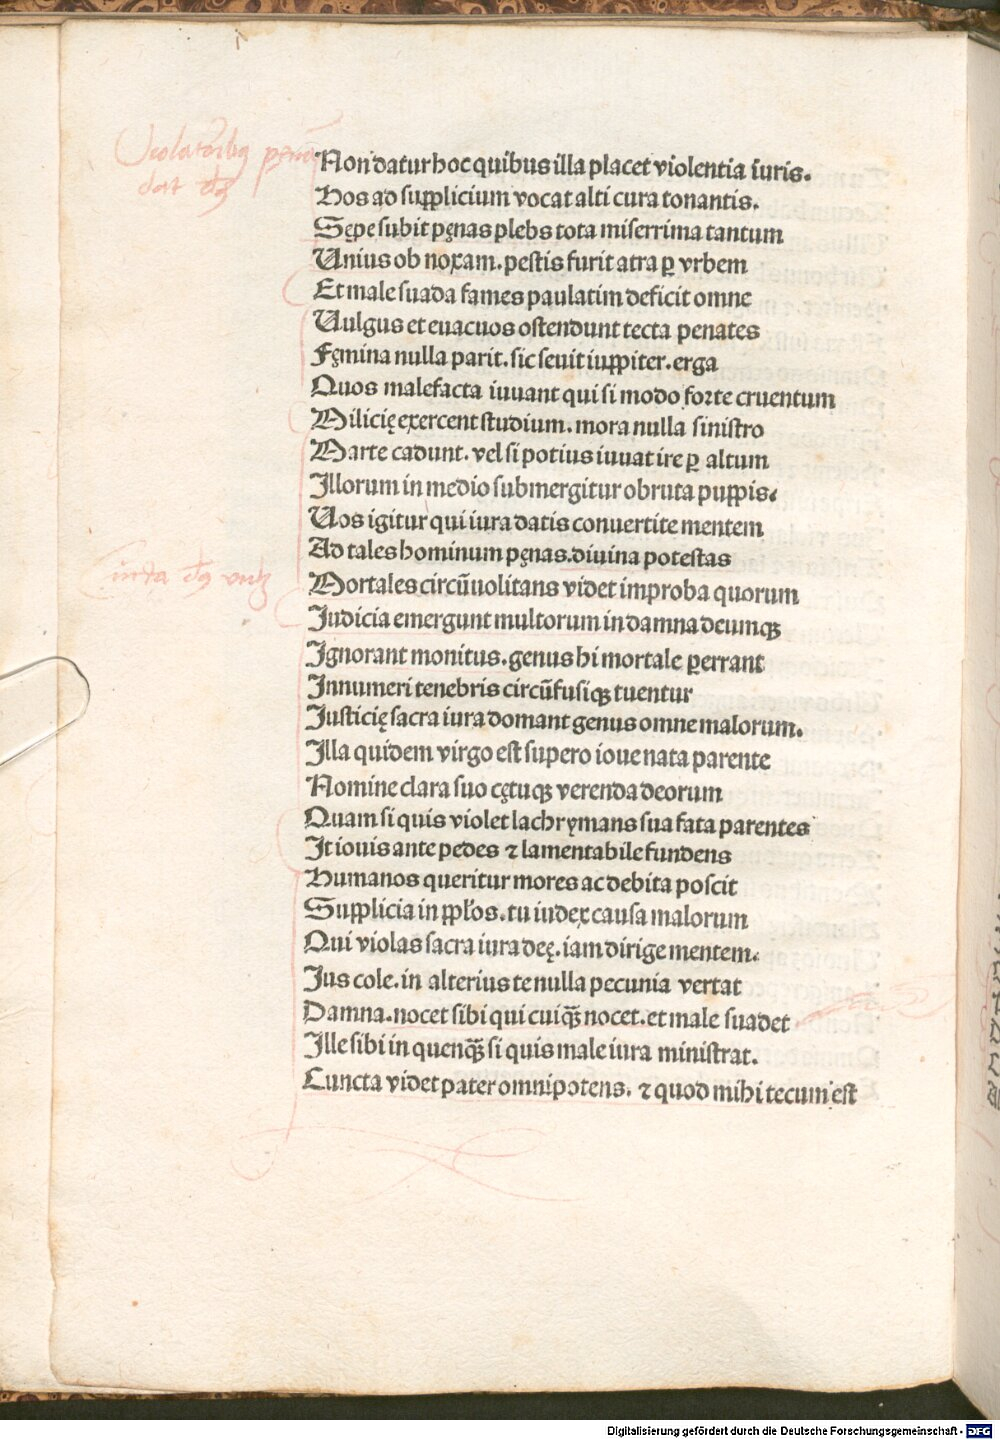 Non datur hoc quibus illa placet violentia iuris.
Hos ad supplicium vocat alti cura tonantis.
Sępe subit pęnas plebs tota miserrima tantum
Unius ob noxam. pestis furit atra ꝑ vrbem
Et male suada fames paulatim deficit omne
Uulgus et euacuos ostendunt tecta penates
Fęmina nulla parit. sic seuit iuppiter. erga
Quos malefacta iuuant qui si modo forte cruentum
Milicię exercent studium. mora nulla sinistro
Marte cadunt. vel si potius iuuat ire ꝑ altum
Illorum in medio submergitur obruta puppis.
Uos igitur qui iura datis conuertite mentem
Ad tales hominum pęnas. diuina potestas
Mortales circūuolitans videt improba quorum
Iudicia emergunt multorum in damna deumqꝫ
Ignorant monitus. genus hi mortale ꝑerrant
Innumeri tenebris circūfusiqꝫ tuentur
Iusticię sacra iura domant genus omne malorum.
Illa quidem virgo est supero ioue nata parente
Nomine clara suo cętuqꝫ verenda deorum
Quam si quis violet lachrymans sua fata parentes
It iouis ante pedes ⁊ lamentabile fundens
Humanos queritur mores ac debita poscit
Supplicia in ppl'os. tu iudex causa malorum
Qui violas sacra iura deę. iam dirige mentem.
Ius cole. in alterius te nulla pecunia vertat
Damna. nocet sibi qui cuiqꝫ̄ nocet. et male suadet
Ille sibi in quenqꝫ̄ si quis male iura ministrat.
Cuncta videt pater omnipotens. ⁊ quod mihi tecum est
Digitalisierung gefördert durch die Deutsche Forschungsgemeinschaft - DFG